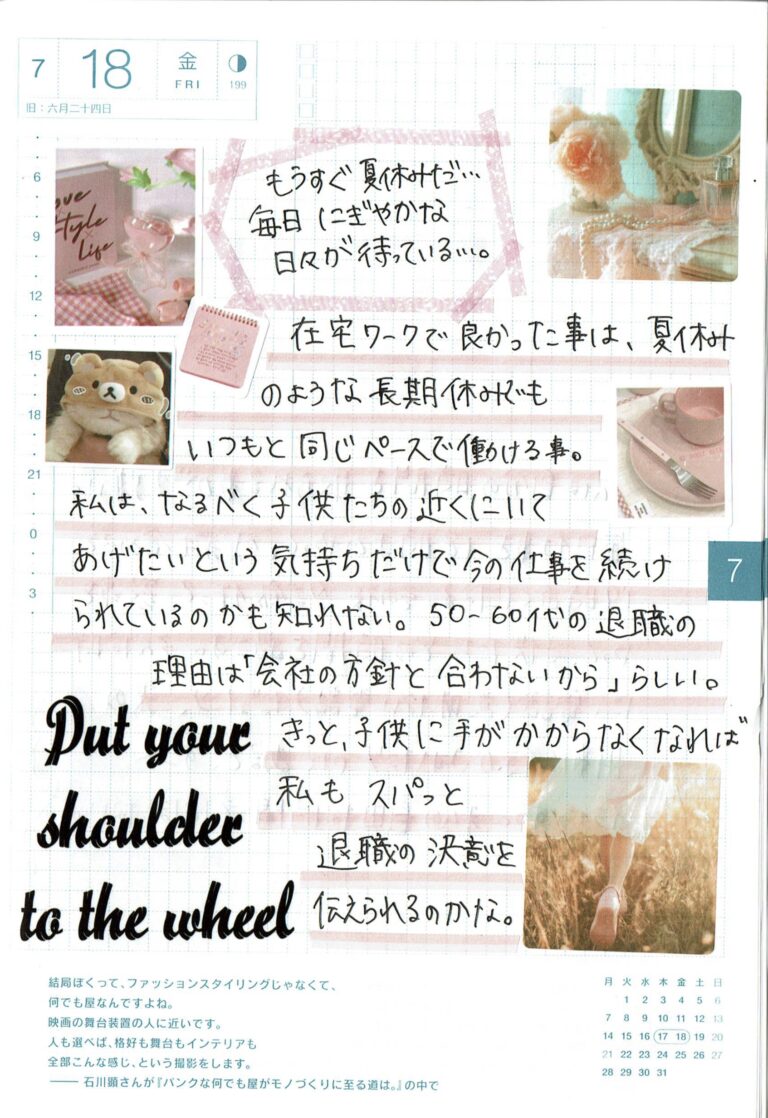 7 18 金 FRI 199
旧:六月二十四日
6
9
12
15
18
21
0
3
Love
Style
Life
もうすぐ夏休みだ…
毎日にぎやかな
日々が待っている…。
在宅ワークで良かった事は、夏休み
のような長期休みでも
いつもと同じペースで働ける事。
私は、なるべく子供たちの近くにいて
あげたいという気持ちだけで今の仕事を続け
られているのかも知れない。50-60代の退職の
理由は「会社の方針と合わないから」らしい。
きっと、子供に手がかからなくなれば
私もスパっと
退職の決意を
伝えられるのかな。
7
Put your
shoulder
to the wheel
結局ぼくって、ファッションスタイリングじゃなくて、
何でも屋なんですよね。
映画の舞台装置の人に近いです。
人も選べば、格好も舞台もインテリアも
全部こんな感じ、という撮影をします。
── 石川顕さんが『パンクな何でも屋がモノづくりに至る道は。』の中で
月 火 水 木 金 土 日
1 2 3 4 5 6
7 8 9 10 11 12 13
14 15 16 17 18 19 20
21 22 23 24 25 26 27
28 29 30 31